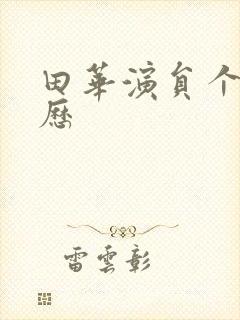 田華演員个
歷
雷雲彰